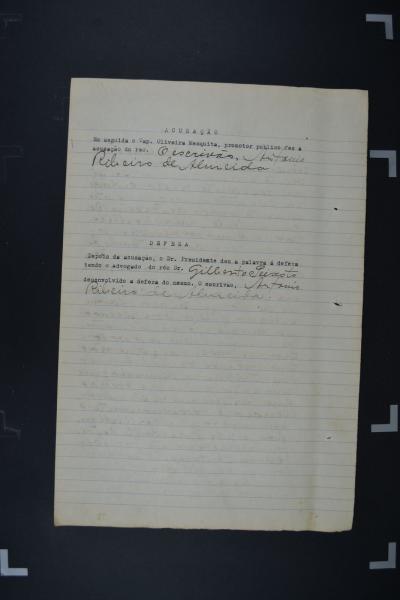 ACUSAÇÃO
Em seguida o Cap. Oliveira Mesquita, promotor publico fez a
acusação do reo. O escrivão, Antonio
Ribeiro de Almeida
DEFESA
Depois da acusação, o Dr. Presidente deu a palavra á defesa
tendo o advogado do réo Dr. Gilberto
desenvolvido a defesa do mesmo. O escrivão, Antonio
Ribeiro de Almeida.